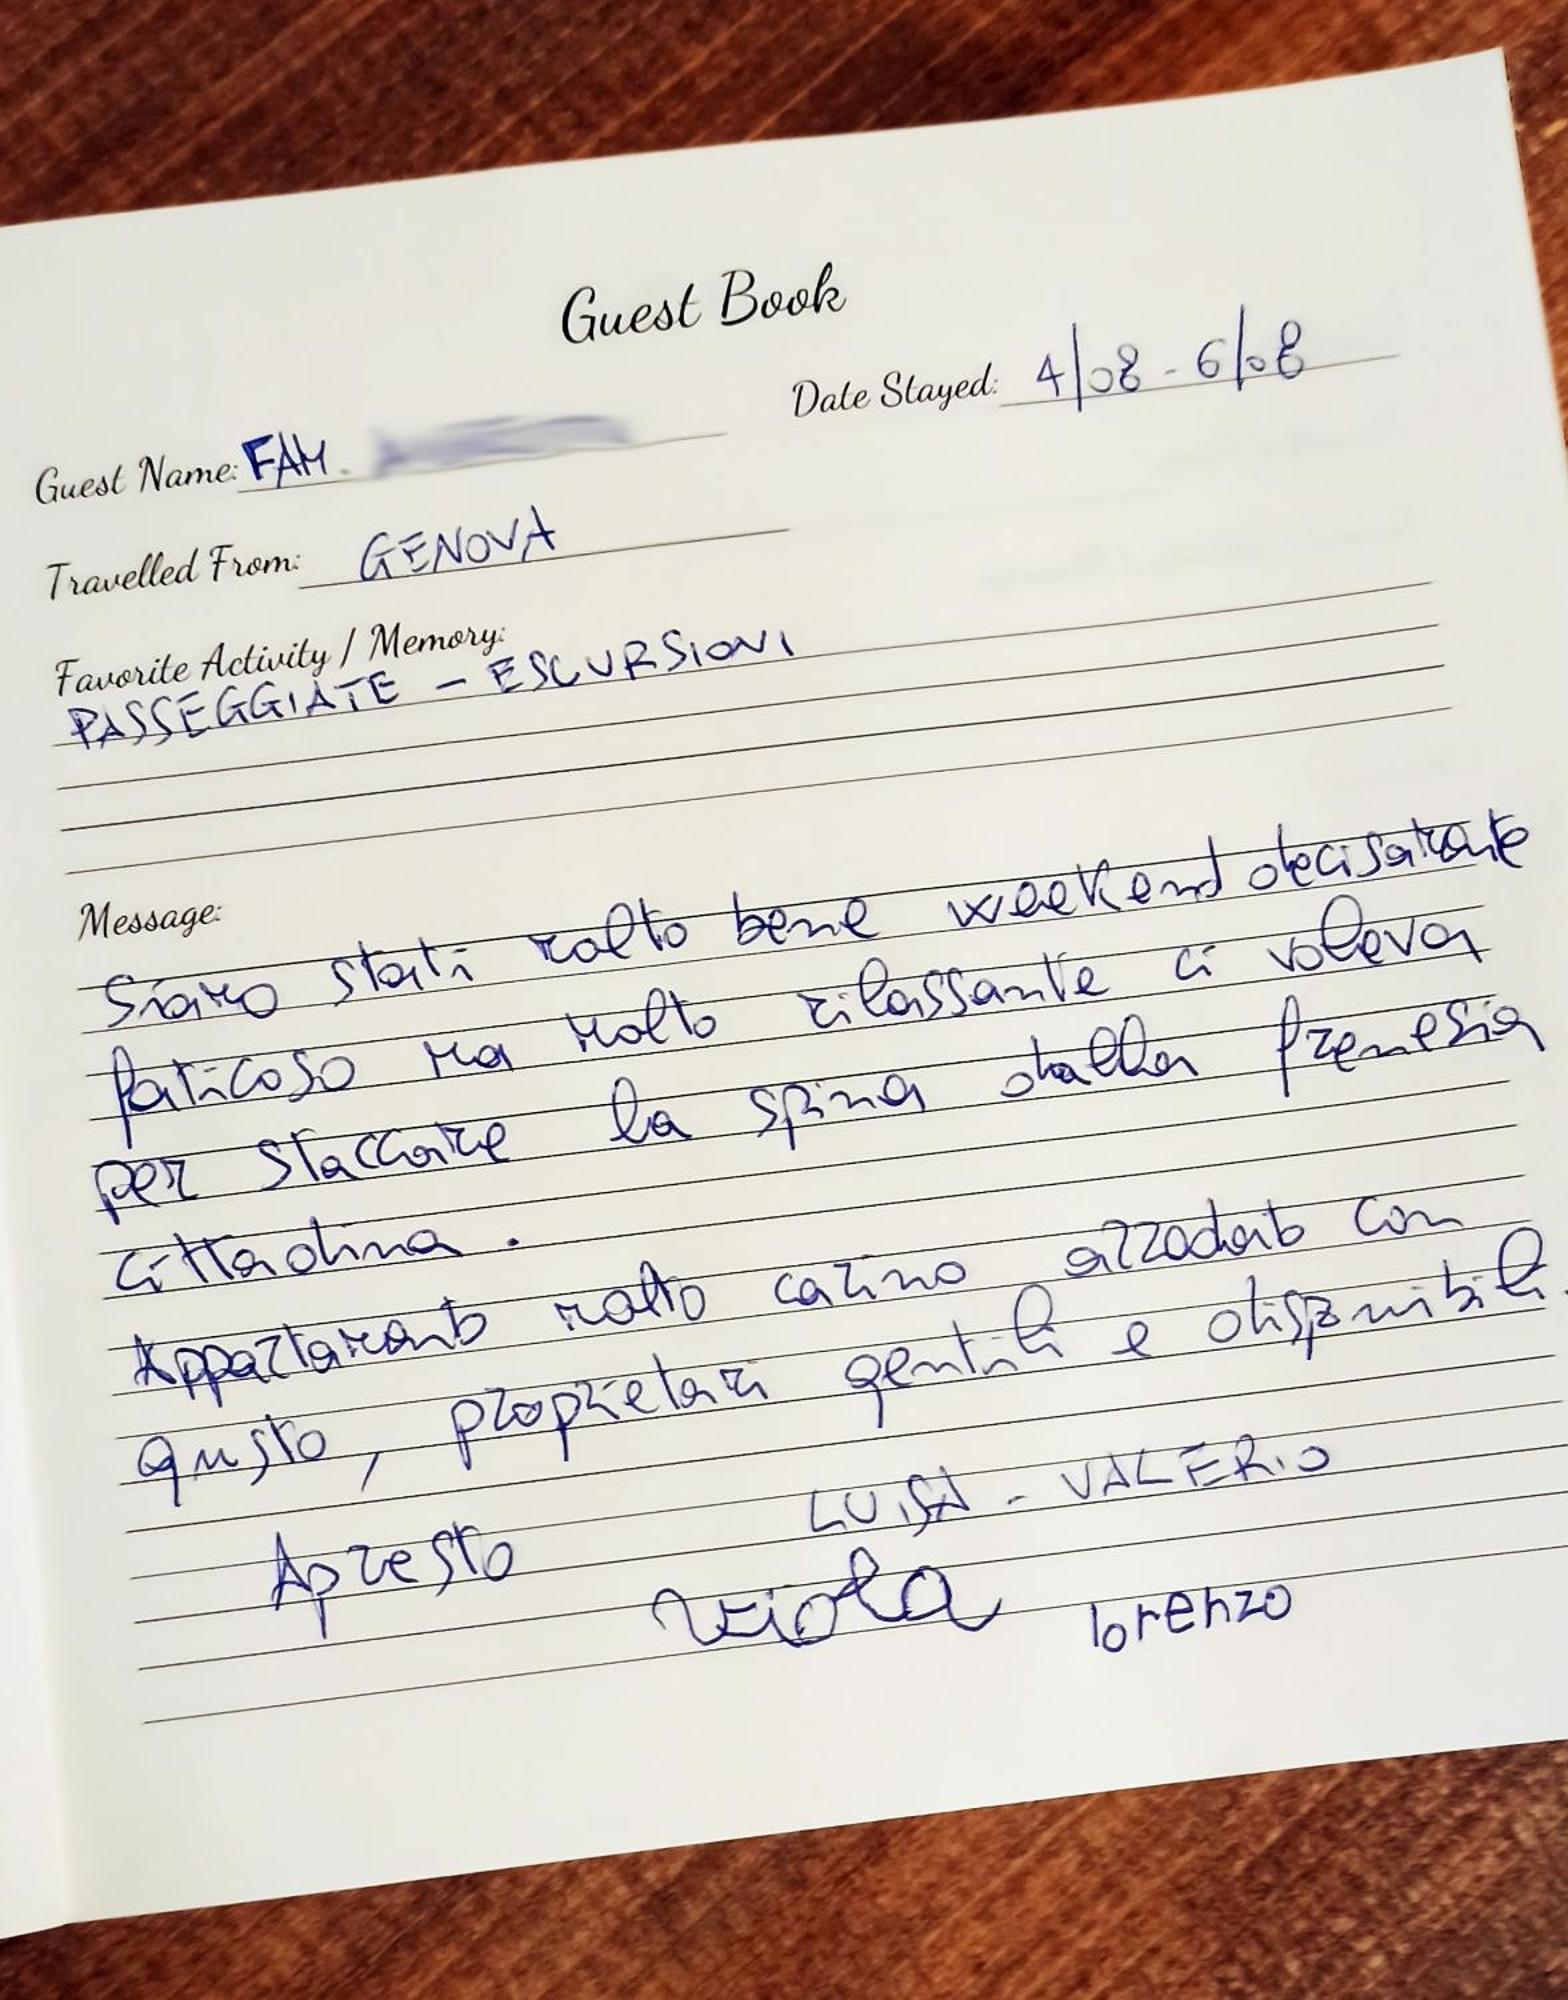 Guest Book
Date Stayed: 4/08 - 6/08
Guest Name: FAM.
Travelled From: GENOVA
Favorite Activity / Memory:
PASSEGGIATE - ESCURSIONI
Message:
Siamo stati molto bene weekend decisamente
faticoso ma molto rilassante ci voleva
per staccare la spina dalla frenesia
cittadina.
Appartamento molto carino arredato con
gusto, proprietari gentili e disponibili.
Apresto
LUISA - VALERIO
viola
lorenzo